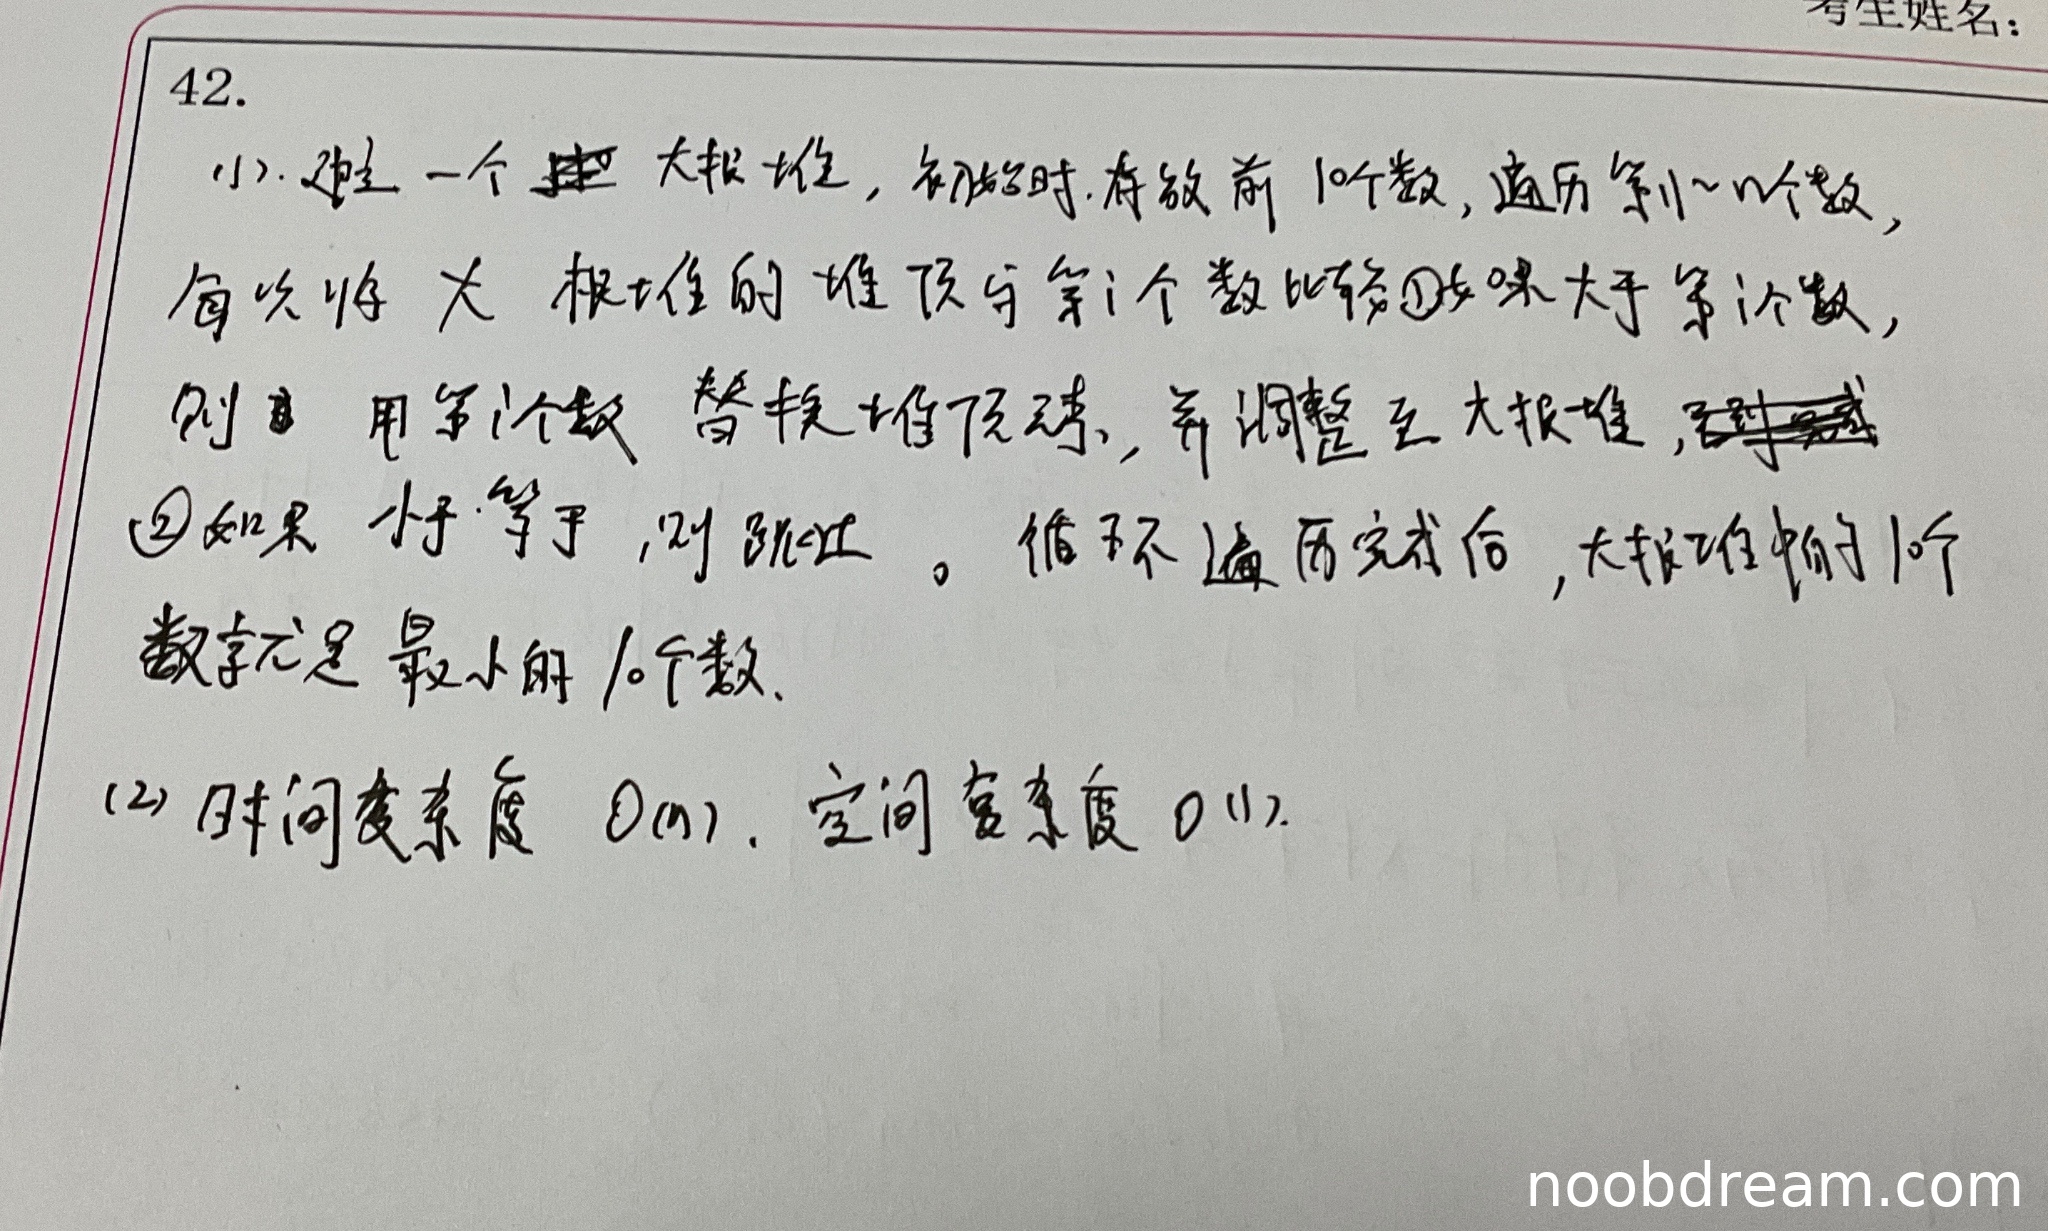 考生姓名：
42.
(1). 建立一个 大根堆，初始时.存放前10个数，遍历第11~n个数，
每次将大根堆的堆顶与第i个数比较①如果大于第i个数，
则 用第i个数 替换堆顶元素，并调整至大根堆，
②如果 小于等于，则跳过。循环遍历完成后，大根堆中的10个
数字就是最小的10个数.
(2) 时间复杂度 O(n). 空间复杂度 O(1).
noobdream.com